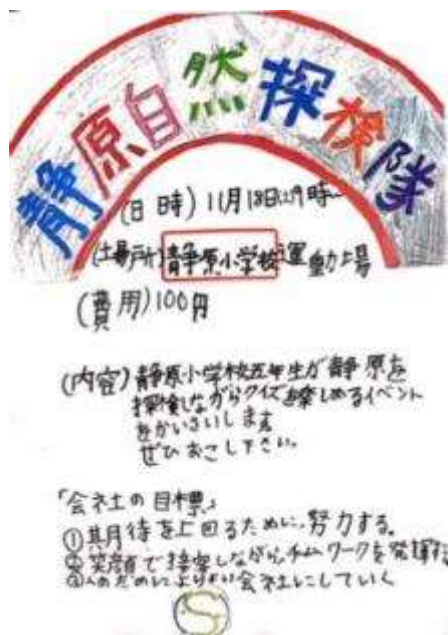 静原自然探検隊
(日時)11月18日(土)9時〜
(場所)静原小学校運動場
(費用)100円
(内容)静原小学校五年生が静原を
探検しながらクイズを楽しめるイベント
をかいさいします
ぜひおこし下さい。
「会社の目標」
①期待を上回るために、努力する。
②笑顔で接客しながらチームワークを発揮
③人のためによりよい会社にしていく
S